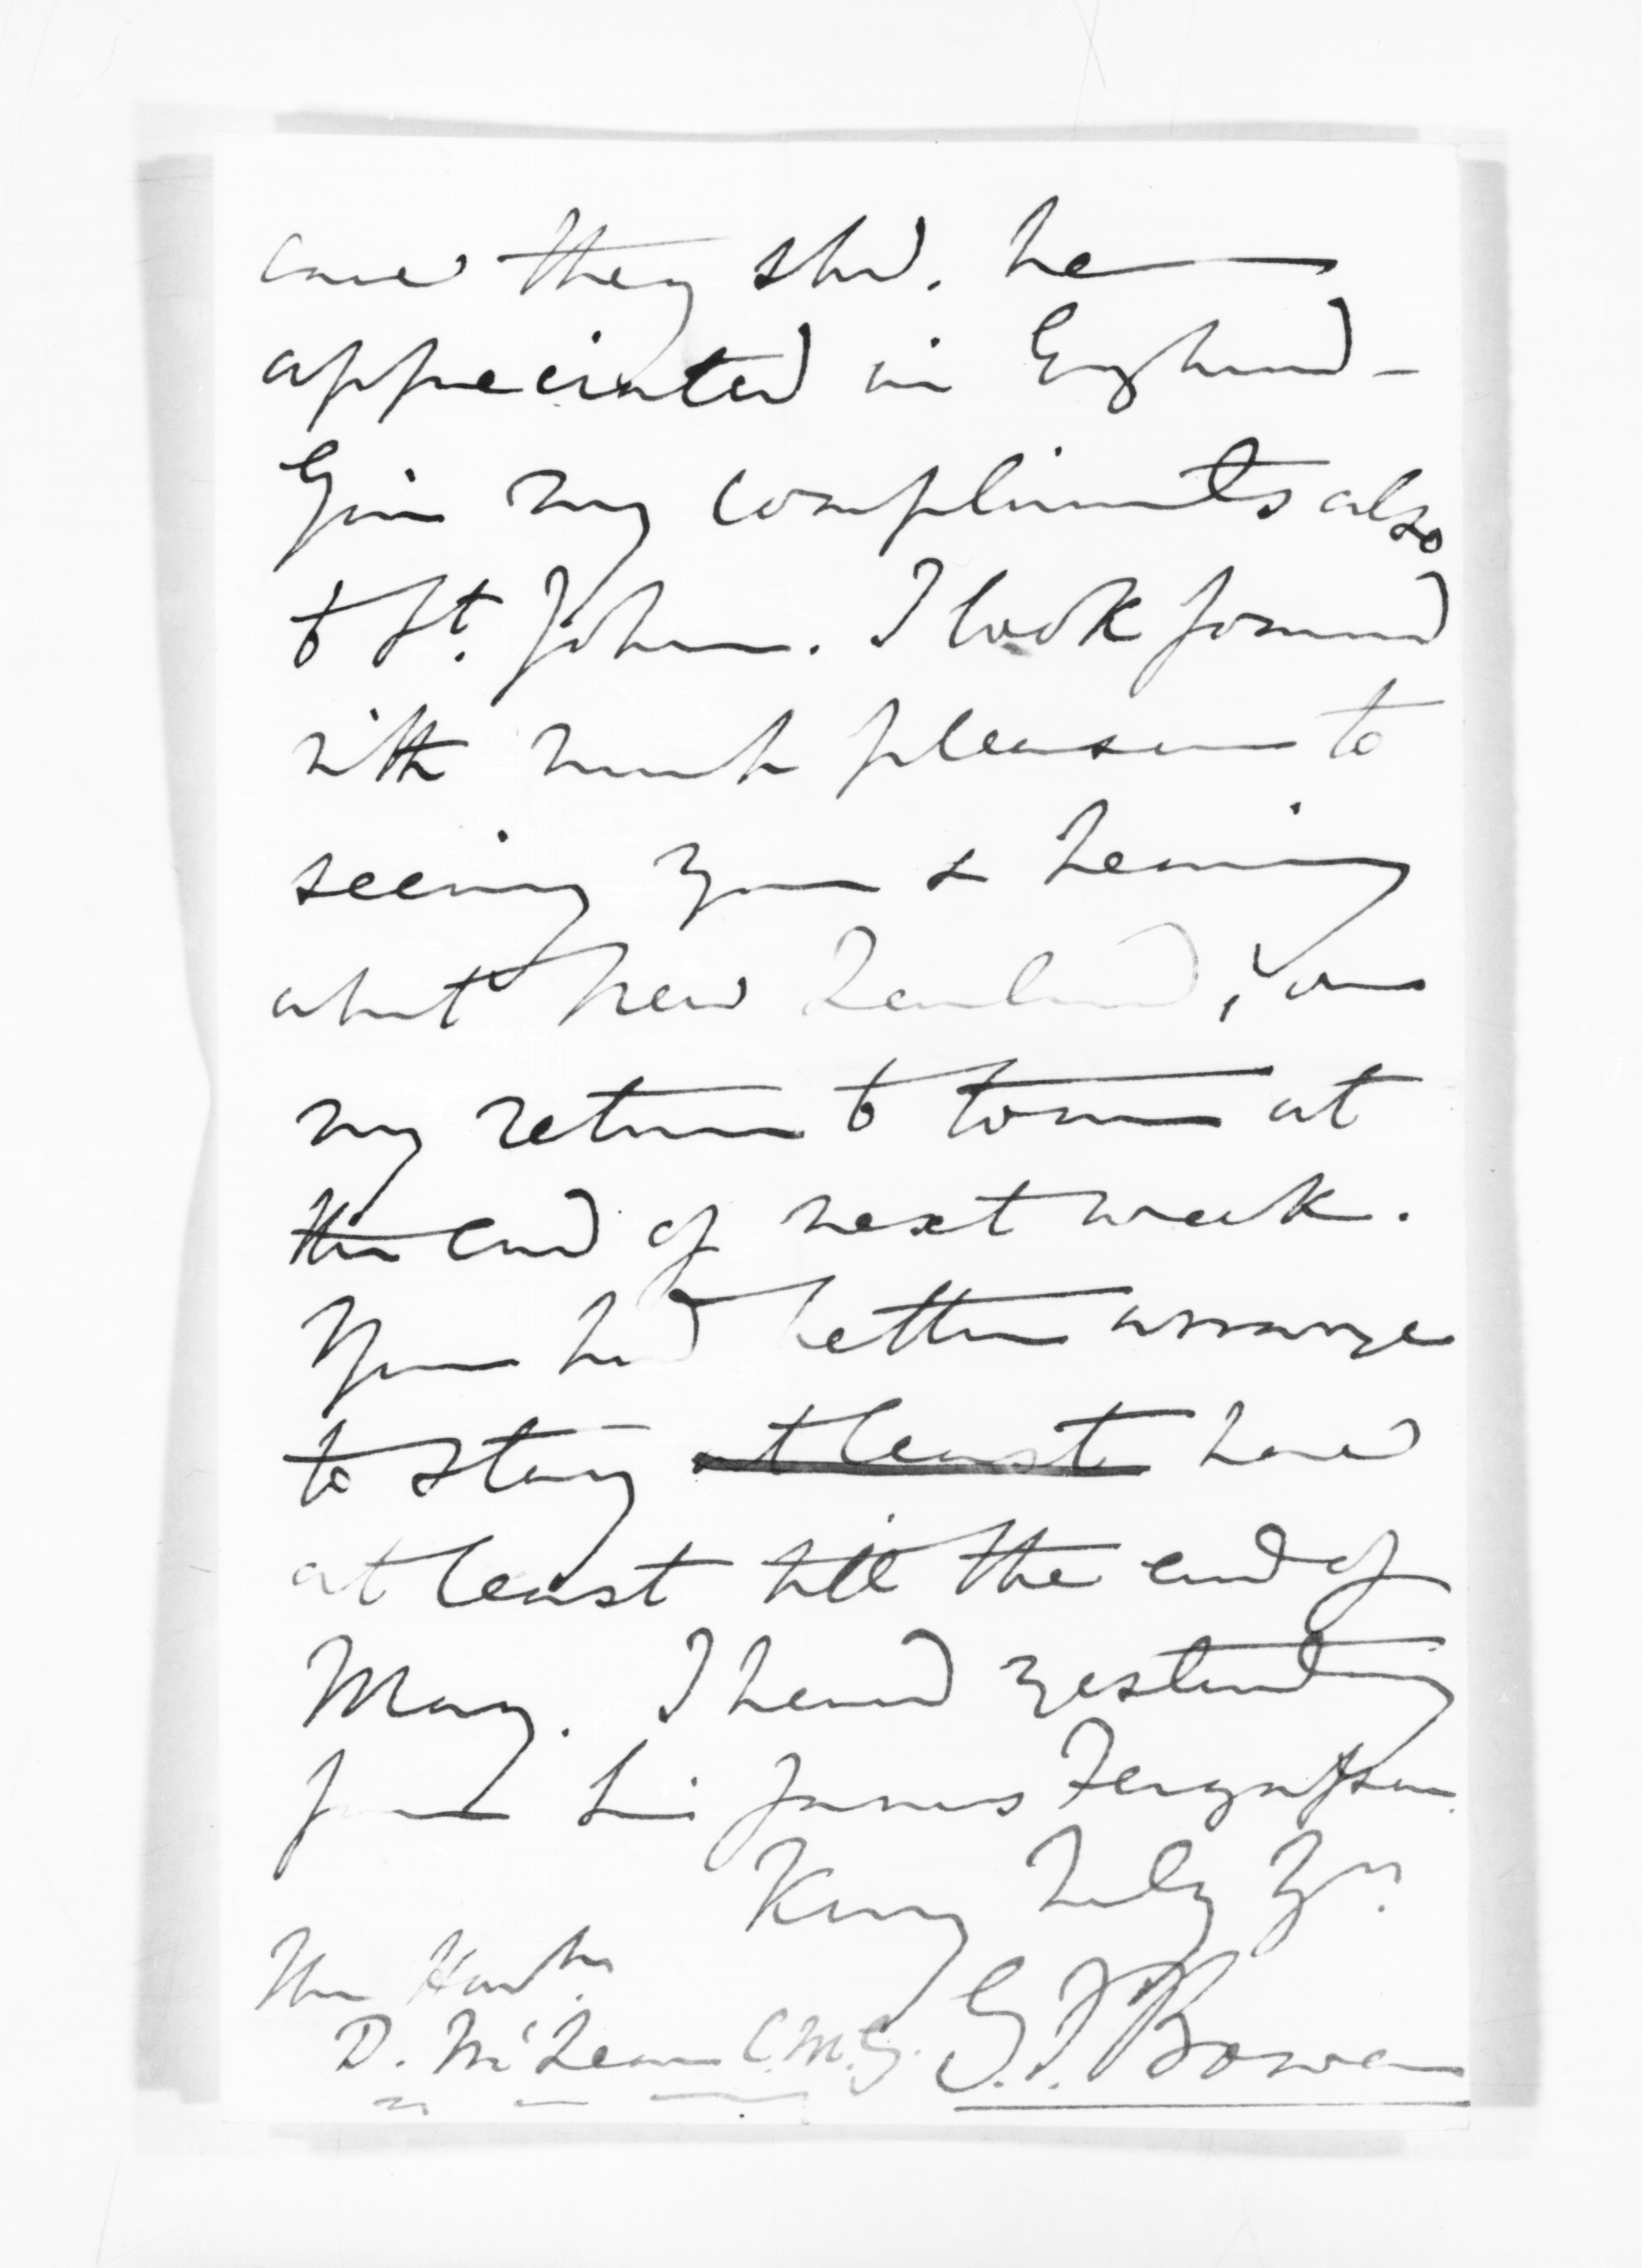 case they shd. be
appreciated in England -
Give my compliments also
to St. John. I look forward
with much pleasure to
seeing you & hearing
about New Zealand, on
my return to town at
the end of next week.
You had better arrange
to stay at least here
at least till the end of
May. I heard yesterday
from Sir James Fergusson.
Very truly yrs.
The Honble.
D. McLean C.M.G. G.F. Bowen